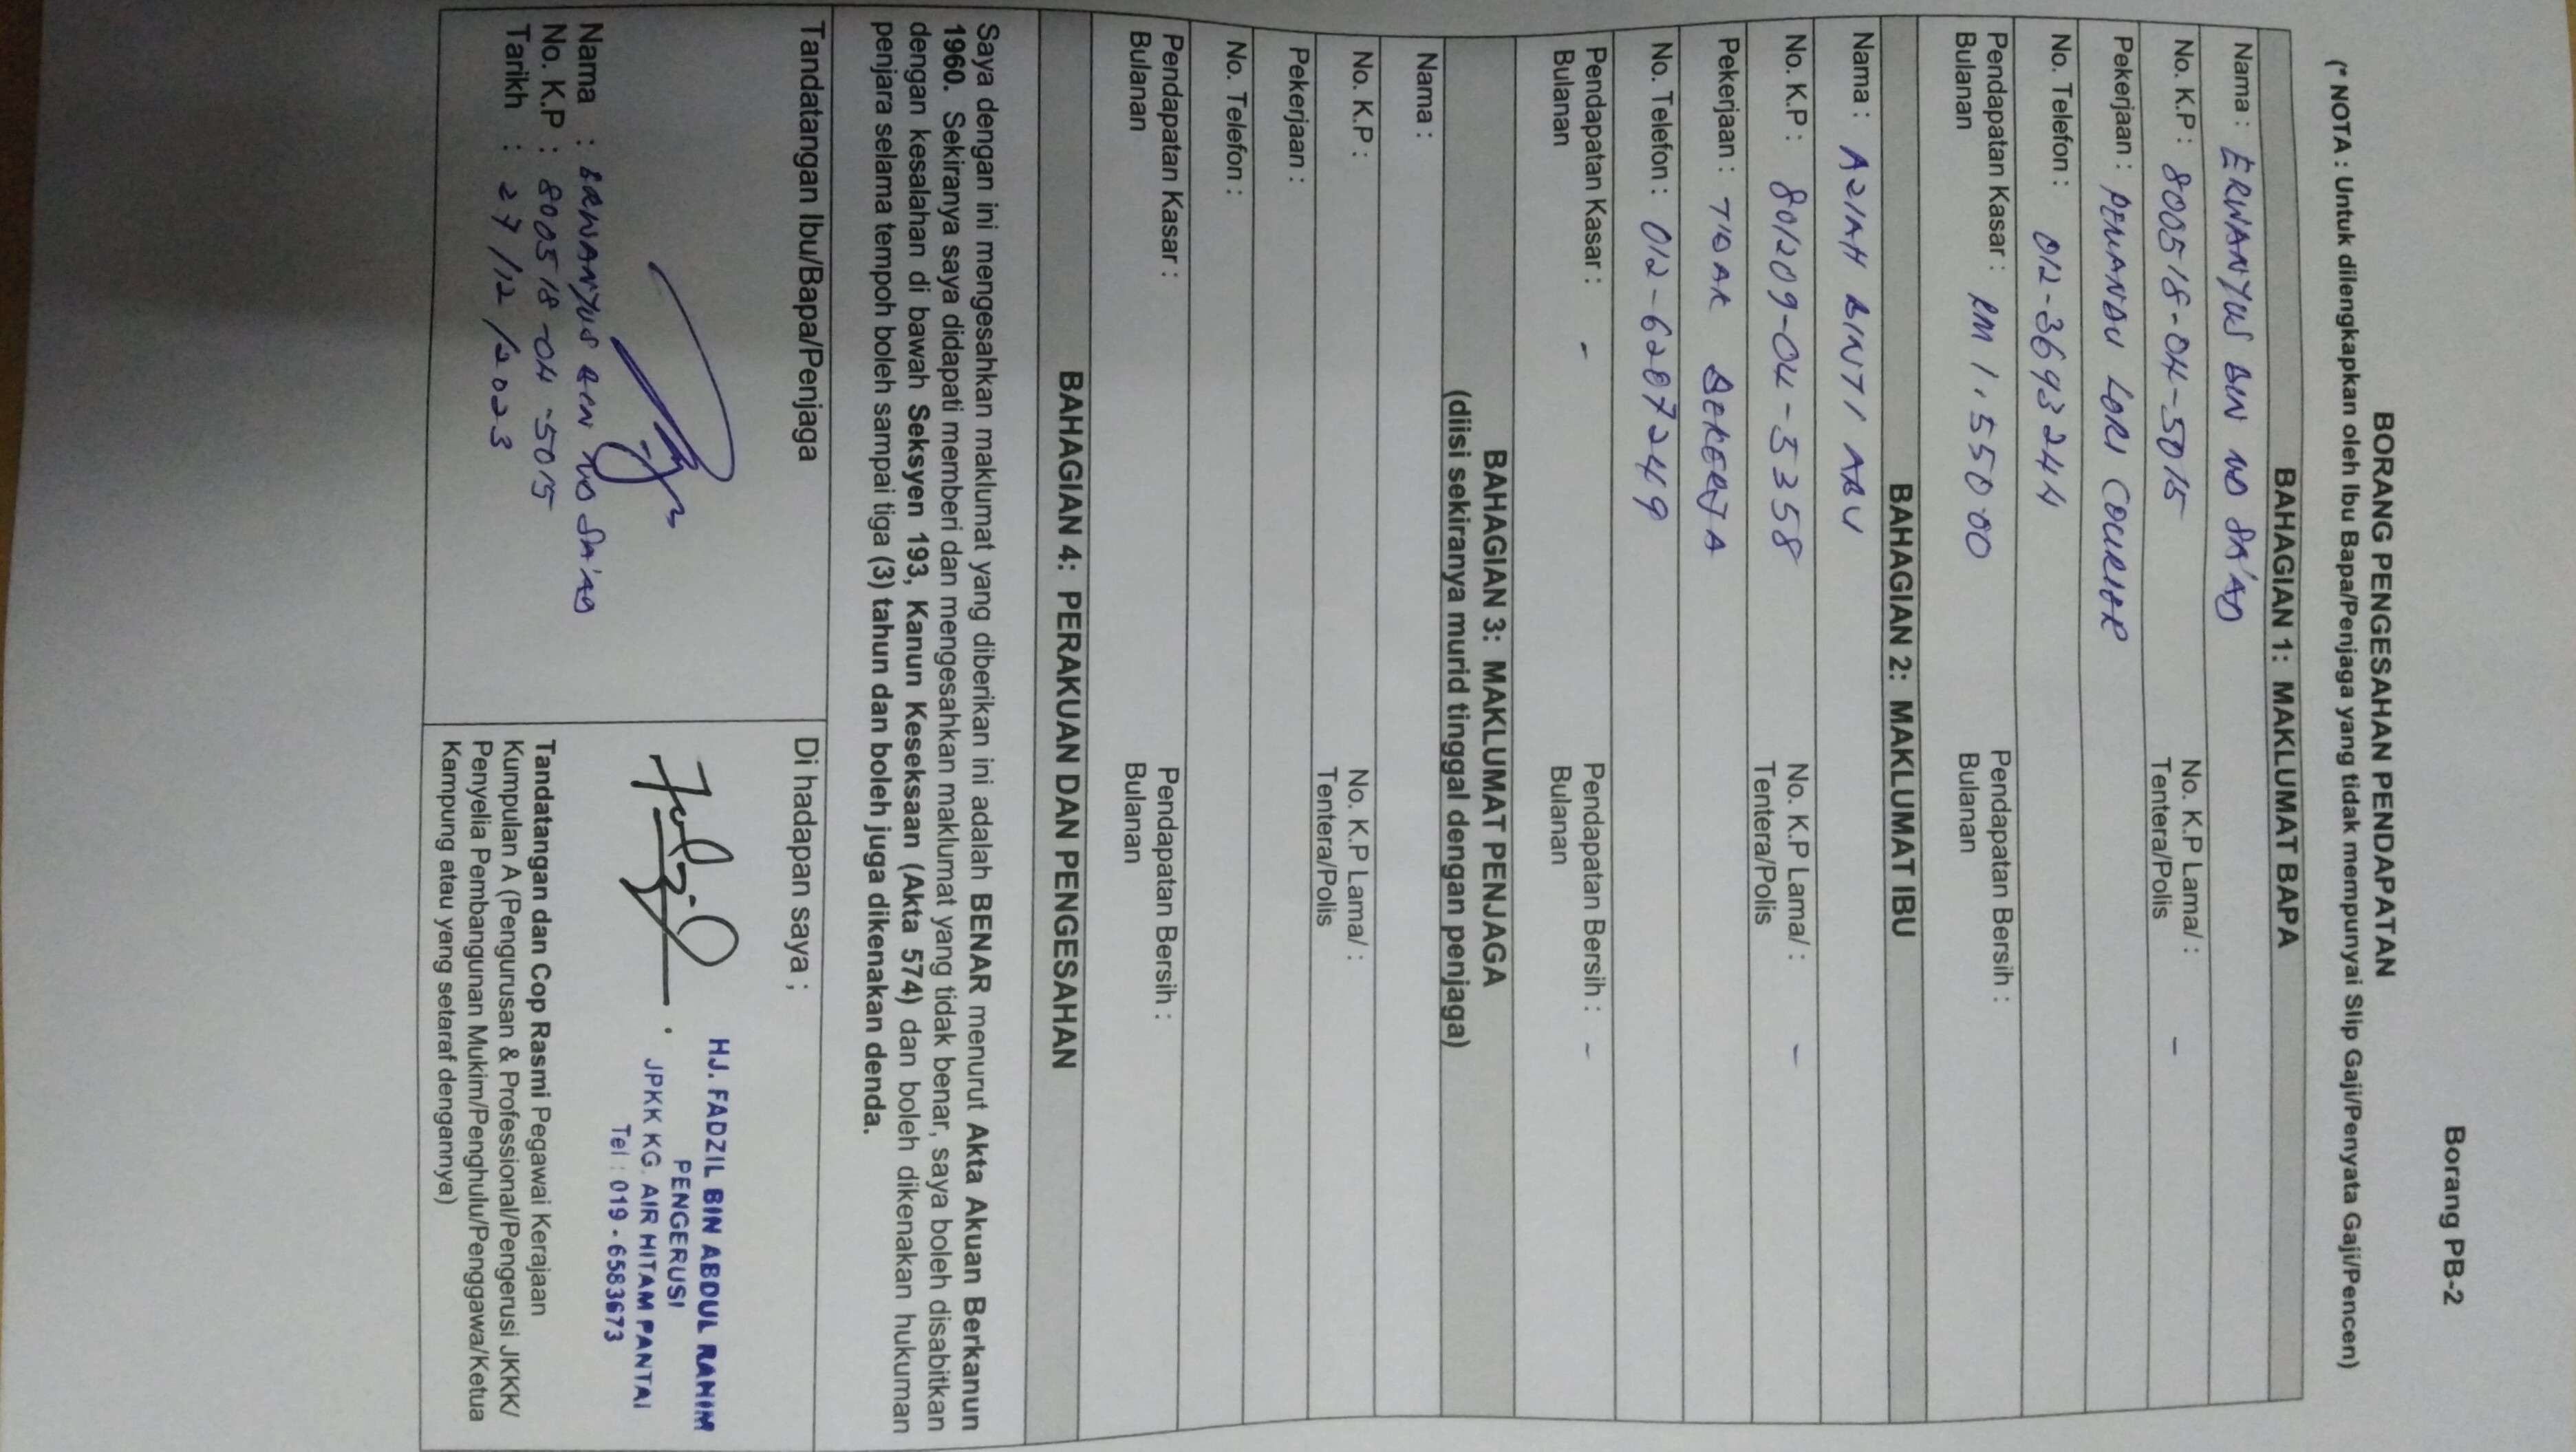 Borang PB-2
BORANG PENGESAHAN PENDAPATAN
(* NOTA : Untuk dilengkapkan oleh Ibu Bapa/Penjaga yang tidak mempunyai Slip Gaji/Penyata Gaji/Pencen)
BAHAGIAN 1: MAKLUMAT BAPA
Nama : ERWANYUS BIN MD SA'AD
No. K.P : 800518-04-5015 No. K.P Lama/ : -
Tentera/Polis
Pekerjaan : PEMANDU LORI COURIER
No. Telefon : 012-3693244
Pendapatan Kasar : RM 1,550.00 Pendapatan Bersih :
Bulanan Bulanan
BAHAGIAN 2: MAKLUMAT IBU
Nama : AZIAH BINTI ABU
No. K.P : 801209-04-5358 No. K.P Lama/ : -
Tentera/Polis
Pekerjaan : TIDAK BEKERJA
No. Telefon : 012-6207249
Pendapatan Kasar : - Pendapatan Bersih : -
Bulanan Bulanan
BAHAGIAN 3: MAKLUMAT PENJAGA
(diisi sekiranya murid tinggal dengan penjaga)
Nama :
No. K.P : No. K.P Lama/ :
Tentera/Polis
Pekerjaan :
No. Telefon :
Pendapatan Kasar : Pendapatan Bersih :
Bulanan Bulanan
BAHAGIAN 4: PERAKUAN DAN PENGESAHAN
Saya dengan ini mengesahkan maklumat yang diberikan ini adalah BENAR menurut Akta Akuan Berkanun
1960. Sekiranya saya didapati memberi dan mengesahkan maklumat yang tidak benar, saya boleh disabitkan
dengan kesalahan di bawah Seksyen 193, Kanun Keseksaan (Akta 574) dan boleh dikenakan hukuman
penjara selama tempoh boleh sampai tiga (3) tahun dan boleh juga dikenakan denda.
Tandatangan Ibu/Bapa/Penjaga
Nama : ERWANYUS BIN MD SA'AD
No. K.P : 800518-04-5015
Tarikh : 27/12/2023
Di hadapan saya ;
Fadzil
HJ. FADZIL BIN ABDUL RAHIM
PENGERUSI
JPKK KG. AIR HITAM PANTAI
Tel : 019 - 6583673
Tandatangan dan Cop Rasmi Pegawai Kerajaan
Kumpulan A (Pengurusan & Professional/Pengerusi JKKK/
Penyelia Pembangunan Mukim/Penghulu/Penggawa/Ketua
Kampung atau yang setaraf dengannya)